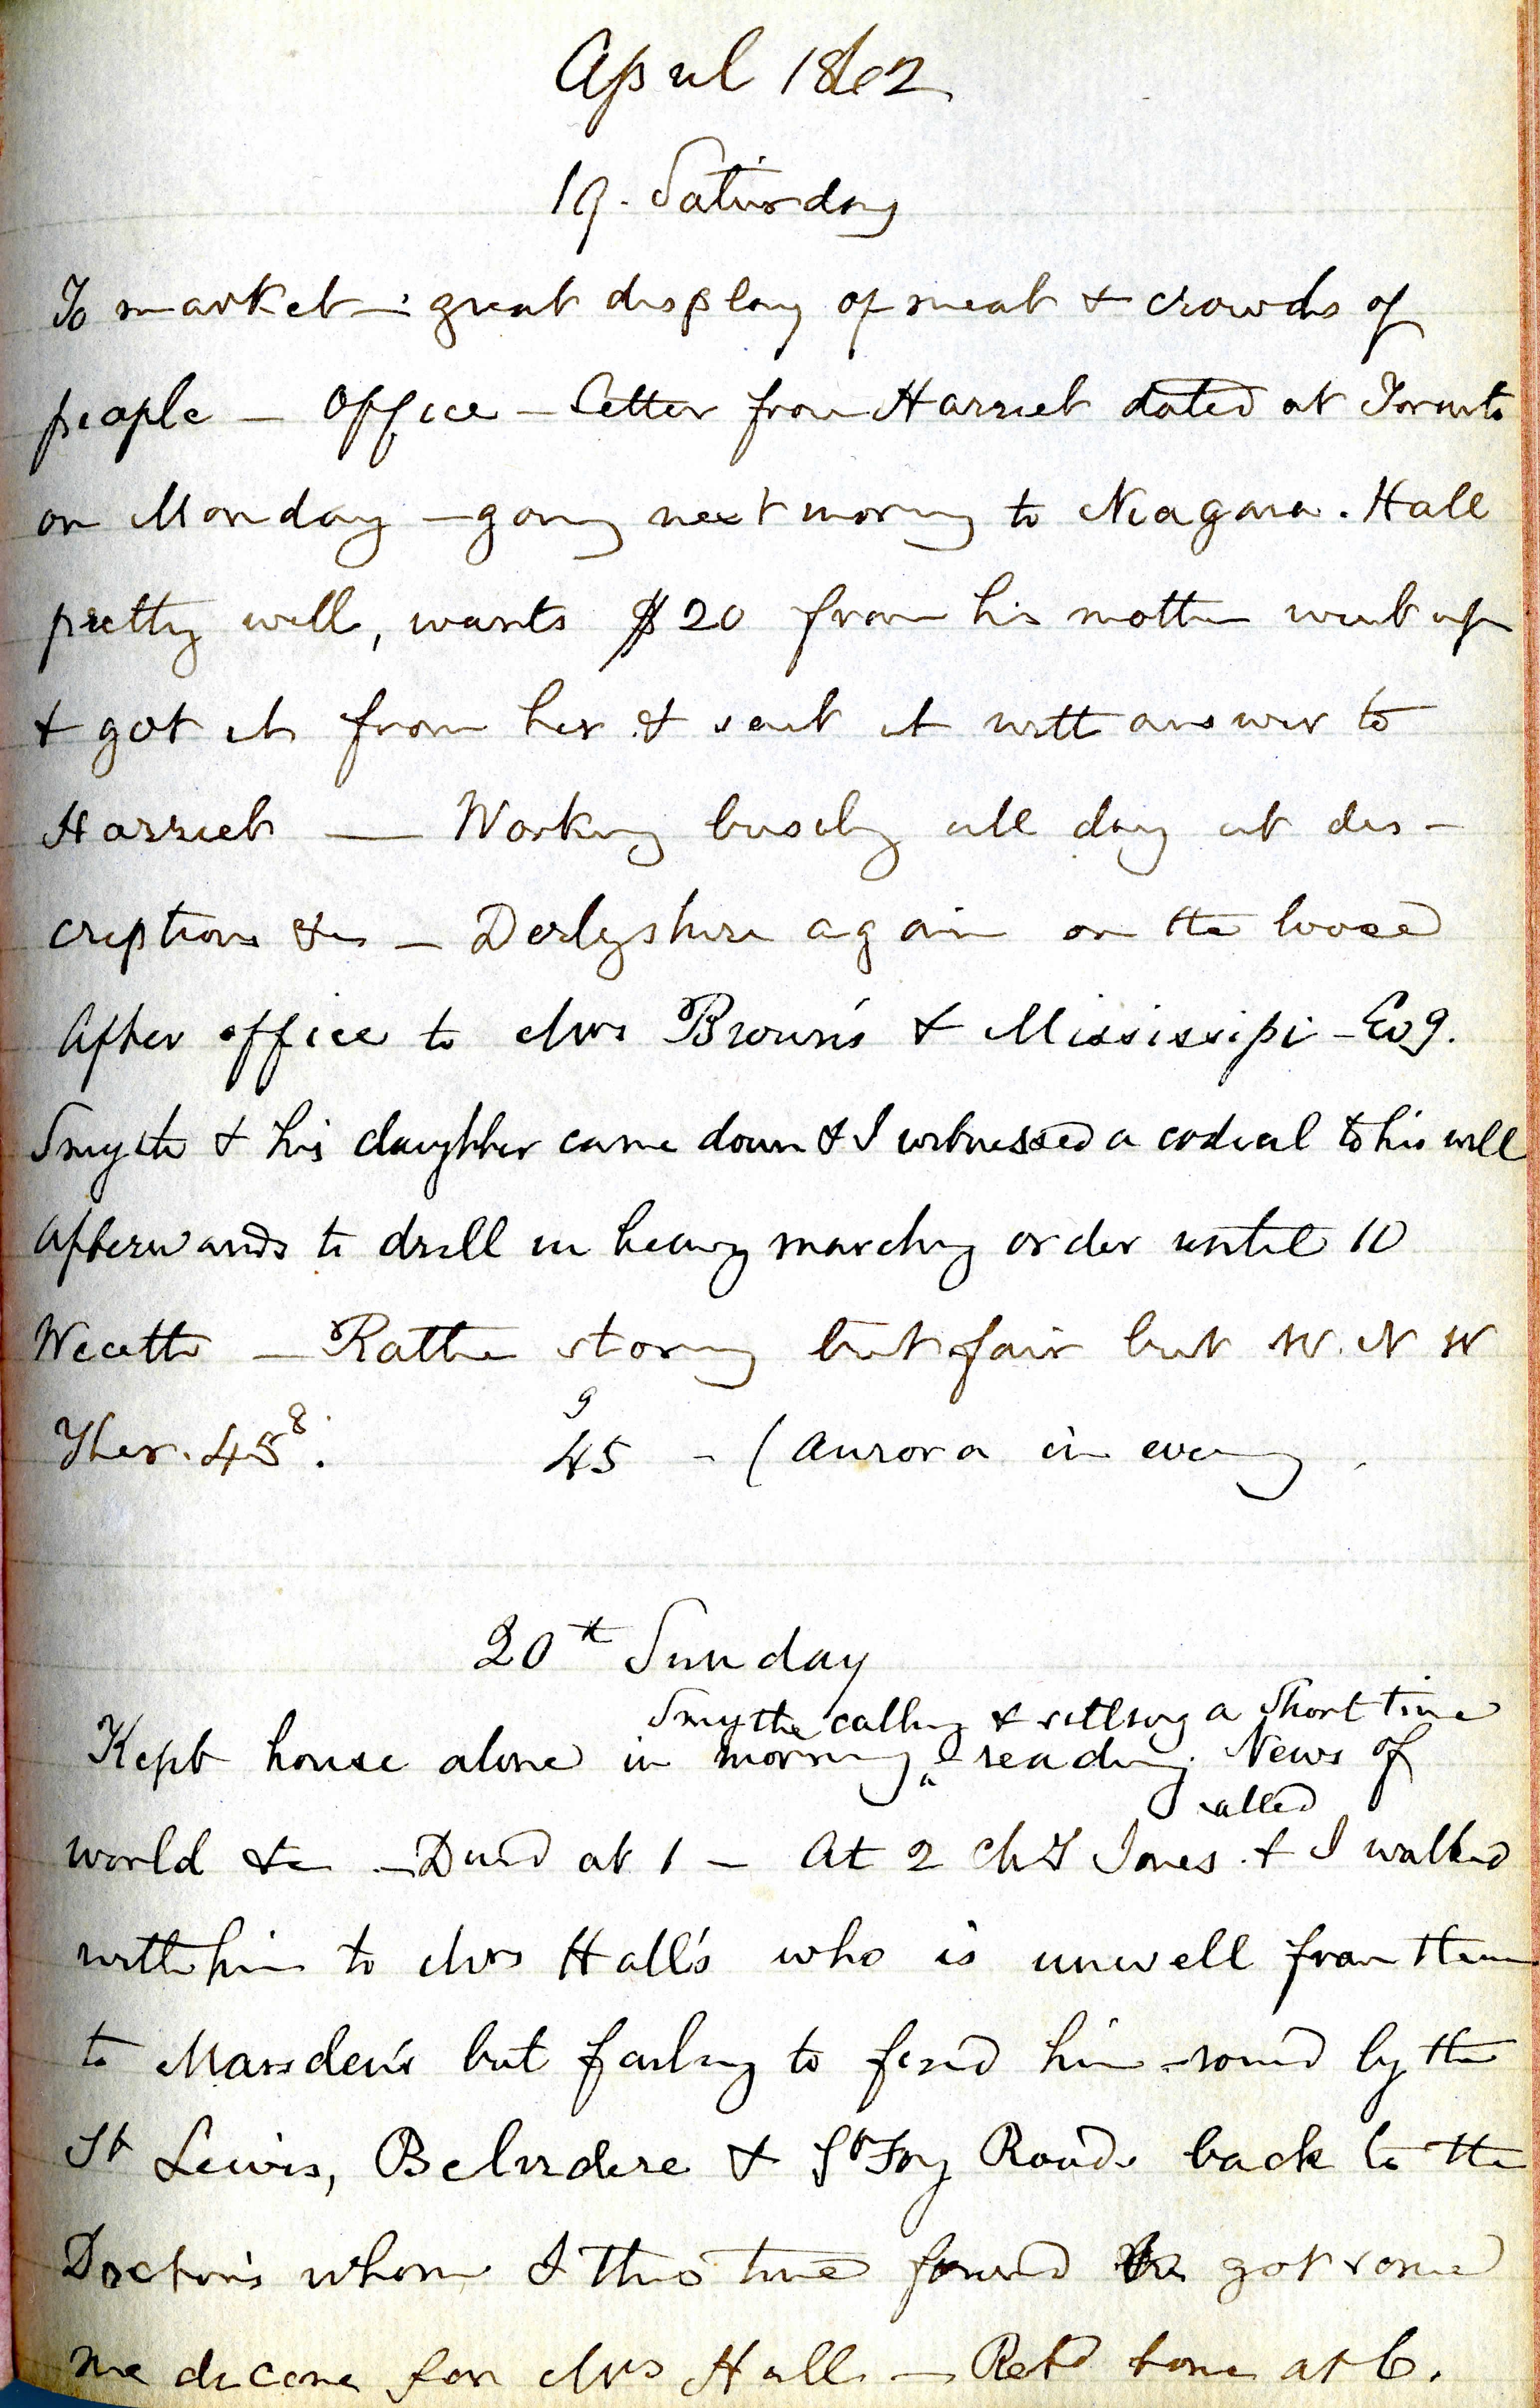 April 1862
19. Saturday
To market - great display of meat & crowds of
people - Office - Letter from Harriet dated at Toronto
on Monday - going next morning to Niagara. Hall
pretty well, wants $20 from his mother went up
& got it from her & sent it with answer to
Harriet — Working busily all day at des-
criptions &c - Derbyshire again on the loose
After office to Mrs Brown's & Mississipi - Evg.
Smyth & his daughter came down & I witnessed a codical to his will
afterwards to drill in heavy marching order until 10
Weather - Rather stormy but fair but W. N W
Ther. 45 8. 45 9 - (Aurora in evening
20th Sunday
Smythe calling & sitting a short time
Kept house alone in morning & reading News of
called
world &c - Dined at 1 - At 2 Chs Jones & I walked
with him to Mrs Hall's who is unwell from them
to Marsden's but failing to find him round by the
St Lewis, Belvidere & St Foy Roads back to the
Doctor's whom I this time found got some
medecine for Mrs Hall - Retd home at 6.